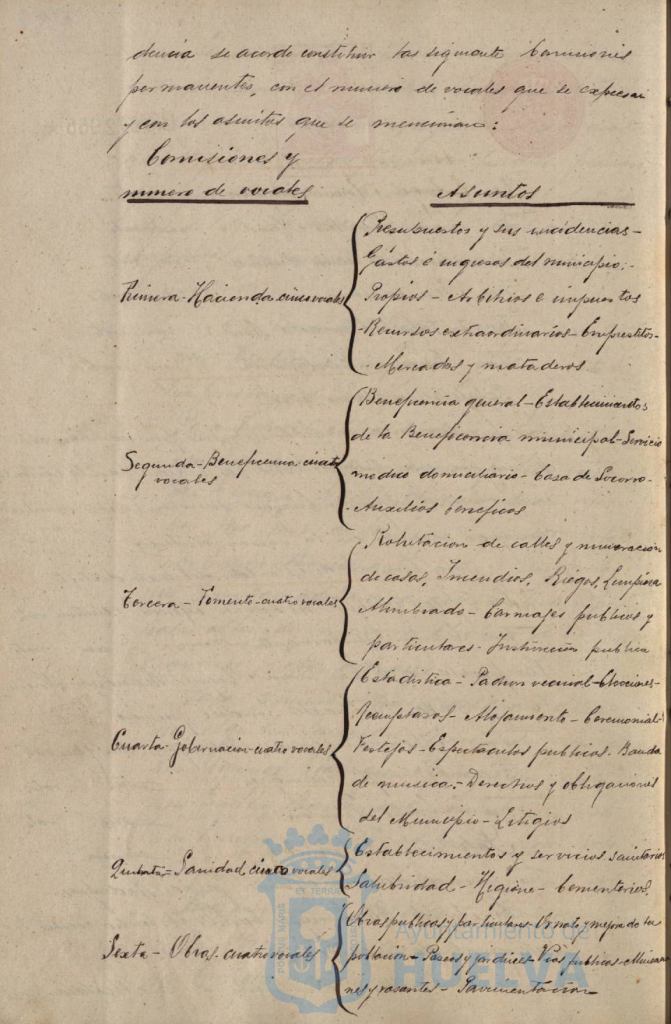 dencia se acordo constituir las siguiente Comisiones
permanentes, con el numero de vocales que se expresan
y con los asuntos que se mencionan:
Comisiones y
numero de vocales
Asuntos
Primera - Hacienda cinco vocales
Presupuestos y sus incidencias -
Gastos é ingresos del municipio; -
Propios - Arbitrios e impuestos
- Recursos extraordinarios - Emprestitos -
- Mercados y mataderos
Segunda - Beneficencia - cuatro
vocales
Beneficencia general - Establecimientos
de la Beneficencia municipal - Servicio
medico domiciliario - Casa de Socorro -
- Auxilios beneficos
Tercera - Fomento - cuatro vocales
Rotulacion de calles y numeración
de casas, Incendios, Riegos, Limpieza
Alumbrado - Carruajes publicos y
particulares - Instrucción publica
Cuarta - Gobernacion - cuatro vocales
Estadistica - Padron vecinal - Elecciones -
Reemplazos - Alojamiento - Ceremonial -
Festejos - Espectaculos publicos - Banda
de musica. - Derechos y obligaciones
del Municipio - Litigios
Quinta - Sanidad vocales
Establecimientos y servicios sanitarios
Salubridad - Higiene - Cementerios.
Sexta - Obras - cuatro vocales
Obras publicas y particulares - Ornato y mejora de la
población - Paseos y jardines - Vias publicas -
nes y rasantes - Pavimentación
Ayuntamiento de
HUELVA